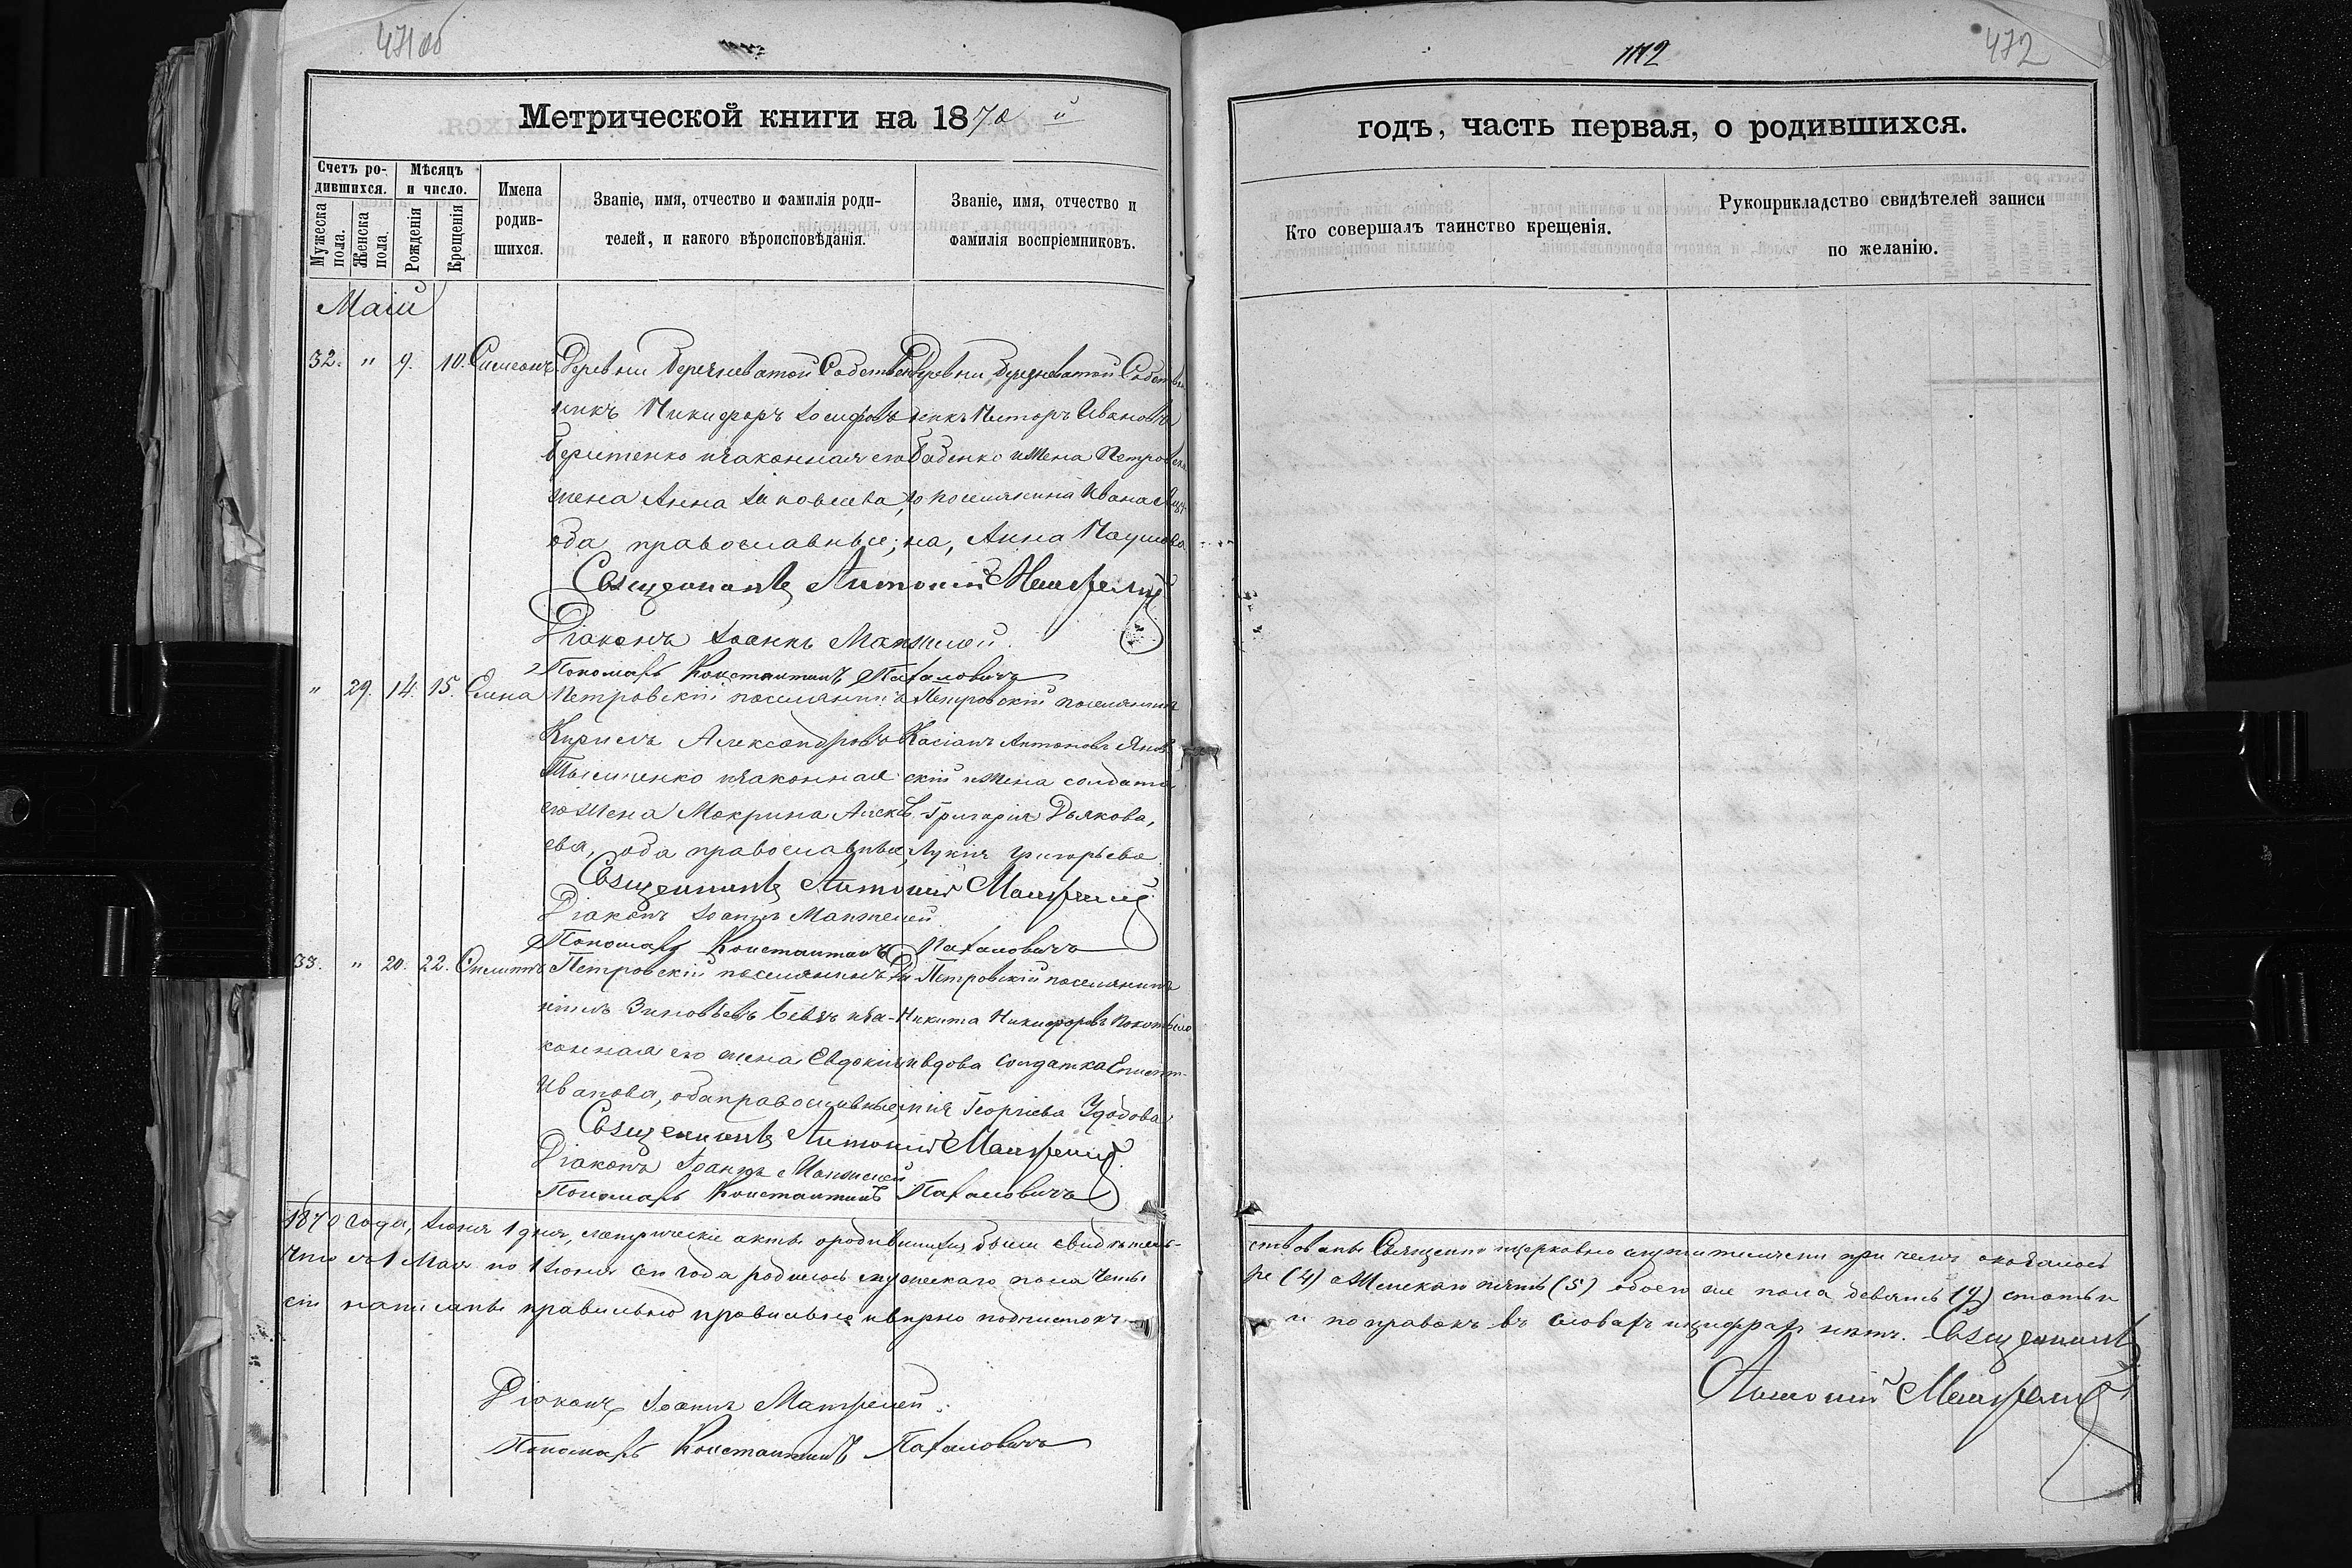 471 об
112
472
Метрической книги на 1870 й
годъ, часть первая, о родившихся.
Счетъ родившихся.
Мужеска пола.
Женска пола.
Мѣсяцъ и число.
Рожденія
Крещенія
Имена родившихся.
Званіе, имя, отчество и фамилія родителей, и какого вѣроисповѣданія.
Званіе, имя, отчество и фамилія воспріемниковъ.
Кто совершалъ таинство крещенія.
Рукоприкладство свидѣтелей записи по желанію.
Маій
32. " 9. 10. Симеонъ
Деревни Березневатой Собствен
никъ Никифоръ Іосифовъ
и законная его
жена Анна Іаковлева,
оба православные;
Деревни Березневатой Собствен
никъ Несторъ Ивановъ
Бабенко и жена Петровска
го поселянина Ивана
на, Анна Наумова
Священникъ Антоній
Діаконъ Іоаннъ
Пономарь Константинъ
" 29. 14. 15. Елена
Петровскій поселянинъ
Кирилъ Александровъ
и законная
его жена Мокрина Алексѣ
ева, оба православные,
Петровскій поселянинъ
Касіанъ Антоновъ Янов
скій и жена солдата
Григорія Дьякова,
Лукія Григорьева
Священникъ Антоній
Діаконъ Іоаннъ
Пономарь Константинъ
33. " 20. 22. Филиппъ
Петровскій поселянинъ Да
ніилъ Зиновьевъ и за-
конная его жена Евдокія
Иванова, оба православные,
Петровскій поселянинъ
Никита Никифоровъ
и вдова солдатка Епист
мія Георгіева Удодова
Священникъ Антоній
Діаконъ Іоаннъ
Пономарь Константинъ
1870 года, Іюня 1 дня, метрическіе акты о родившихся были свидѣтель-
ствованы Священно и церковно служителями при чемъ оказалось
что съ 1 Мая по 1 Іюня сего года родилось мужескаго пола четы
ре (4) а Женскаго пять (5) обоего же пола девять (9) статьи
сіи написаны правильно и вѣрно подчистокъ
и поправокъ въ словахъ и цифрахъ нѣтъ. Священникъ
Антоній
Діаконъ Іоаннъ
Пономарь Константинъ